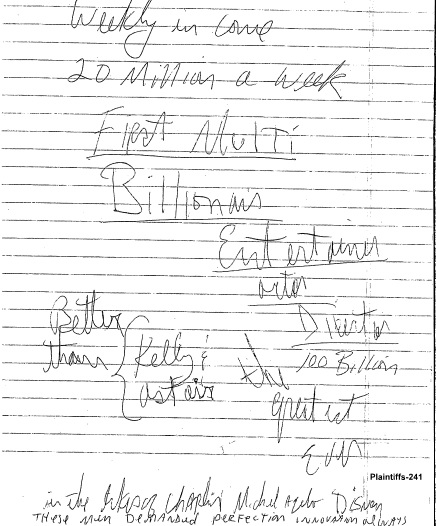 Weekly in come
20 Million a week
First Multi
Billionais
Entertainer
actor
Director
Better
than
Kelly &
astair
100 Billion
the
greatest
Ever
Plaintiffs-241
in the of Chaplin Michel Disney
These men DEMANDED PERFECTION INNOVATION ALWAYS